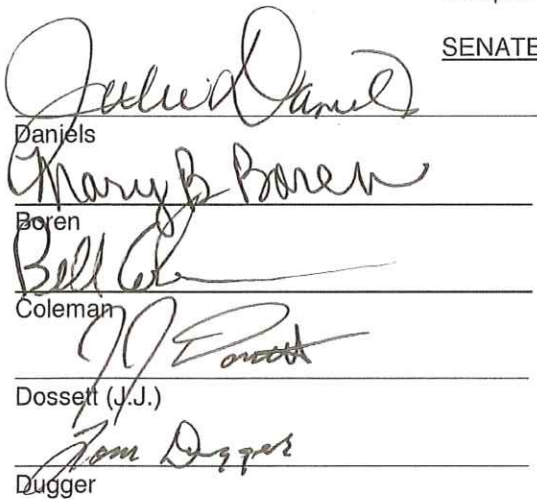 SENATE
Julie Daniels
Daniels
Mary B Boren
Boren
Bill Coleman
Coleman
JJ Dossett
Dossett (J.J.)
Tom Dugger
Dugger